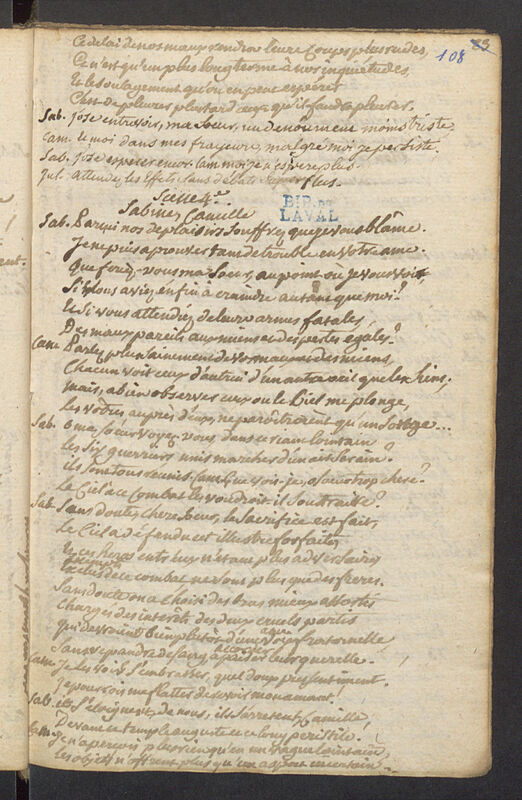 108 83
Ce delai de nos maux rendra leurs coups plus rudes,
Ce n'est qu'un plus long terme à nos inquietudes,
Et le soulagement qu'on en peut esperer
C'est de pleurer plus tard ceux qu'il faudra pleurer.
Sab. J'ose entrevoir, ma soeur, un denoûment moins triste,
Cam. Et moi dans mes frayeurs, malgré moi je persiste.
Sab. J'ose esperer encor. Cam. moi je n'espere plus.
Jul. Attendez les effets sans débats superflus.
Scene 4.e
Sabine, Camille
BIB. DE
LAVAL
Sab. Parmi nos deplaisirs souffrez que je vous blâme.
Je ne puis aprouver tant de trouble en votre ame.
Que feriez-vous ma soeur, au point où je vous vois,
Si vous aviez enfin à craindre autant que moi?
Et si vous attendiez de leurs armes fatales,
Des maux pareils aux miens et des pertes egales?
Cam. Parlez plus sainement de vos maux et des miens,
Chacun voit ceux d'autrui d'un autre oeil que les siens;
Mais, à bien observer ceux où le Ciel me plonge,
les vôtres auprès d'eux, ne paroîtroient qu'un songe...
Sab. ô ma soeur voyez-vous dans ce lointain
les six guerriers unis marcher d'un air serain?
ils sont tous réunis. Cam. Que vois-je, o soeur trop chere?
Le Ciel a ce combat les voudroit-il soustraire?
Sab. Sans doute, chere soeur, le sacrifice est fait,
Le Ciel a défendu cet illustre forfait,
Et ces heros entr'eux n'etant plus adversaires
de ce combat ne sont plus que des freres.
Sans doute on a choisi des bras mieux assortis
Chargés des interêts des deux cruels partis
qui devroient d'une voix fraternelle
Sans repandre de sang leur querelle.
Cam. Je les vois s'embrasser, quel doux pressentiment.
Je pourrois me flatter de revoir mon amant!
Sab. ils s'eloignent de nous, ils s'arretent, Camille,
Devant ce temple auguste et ce long peristile.
Cam. Je n'aperçois plus rien qu'en un vague lointain,
les objets n'offrent plus qu'un aspect incertain.